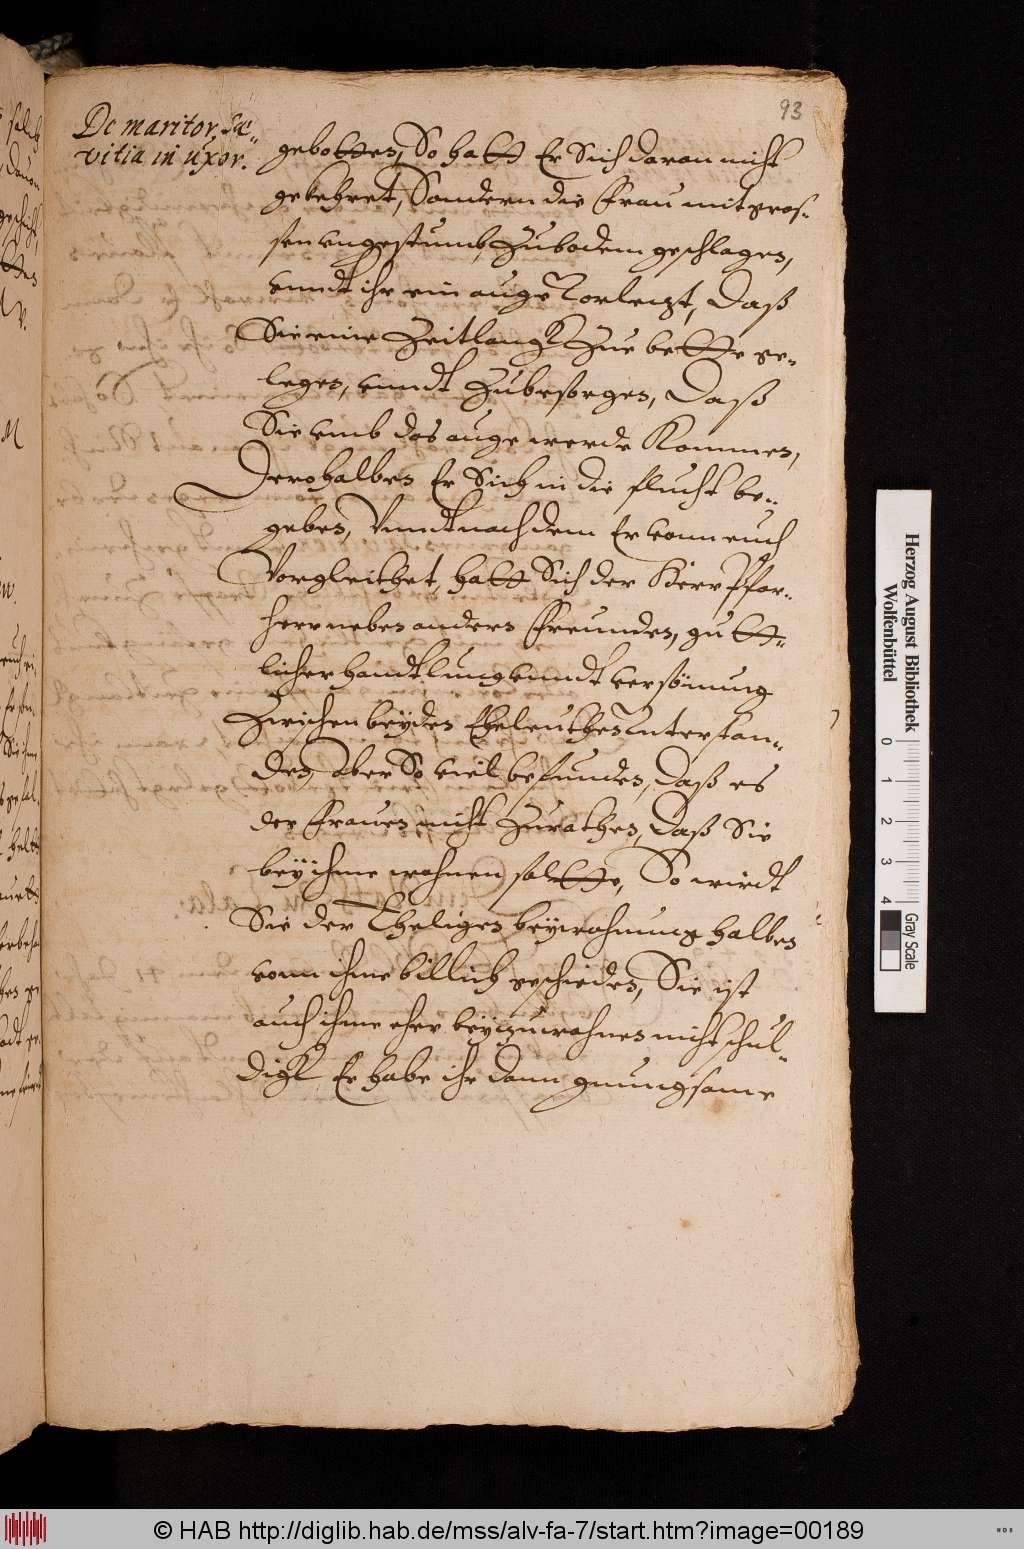 93
De maritor. Sæ-
vitia in uxor.
gebotten, So hatt Er Sich daran nicht
gekehret, Sondern die Frau mit gros-
sen ungestumb, Zu bodem geschlagen,
unndt ihr ein auge Vorletzt, Daß
Sie eine Zeitlangk Zue bette ge-
legen, unndt Zubesorgen, Daß
Sie umb das auge werde Kommen,
Derohalben Er Sich in die flucht be-
geben, Unndt nach dem Er vonn euch
Vorgleithet, hatt Sich der Herr Pfar-
herr neben andern Freunden, gutt-
licher handtlung unndt versönung
Zwischen beyden Eheleuthen Unterstan-
den, Aber So viel befunden, Daß es
der Frauen nicht Zurathen, Daß Sie
bey ihme wohnen soltte, So wirdt
Sie der Eheligen beywohnung halben
vonn ihme billich geschieden, Sie ist
auch ihme eher beyzuwohnen nicht schul-
digk Er habe ihr dann gnungsame
Herzog August Bibliothek
Wolfenbüttel
0 1 2 3 4
Gray Scale
© HAB http://diglib.hab.de/mss/alv-fa-7/start.htm?image=00189